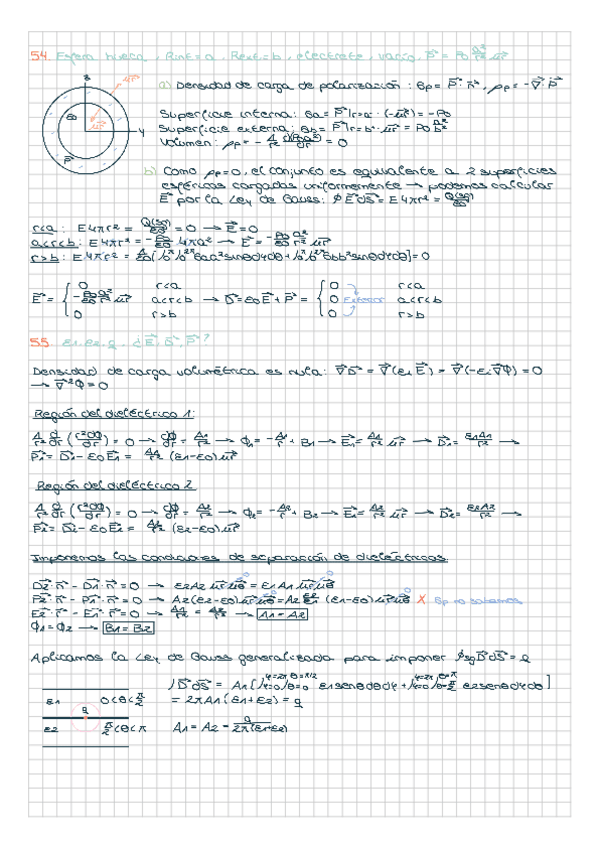 54. Esfera hueca, Rint=a, Rext=b, electrete, vacío, P⃗ = P0 a²/r² ur⃗
a) Densidad de carga de polarización: σp = P⃗·n⃗, ρp = -∇⃗·P⃗
Superficie interna: σa = P⃗|r=a · (-ur⃗) = -P0
Superficie externa: σb = P⃗|r=b · ur⃗ = P0 a²/b²
Volumen: ρp = - 1/r² d(P0a²)/dr = 0
b) Como ρp=0, el conjunto es equivalente a 2 superficies
esféricas cargadas uniformemente → podemos calcular
E⃗ por la Ley de Gauss: ∮E⃗dS⃗ = E4πr² = Q(sg)/ε0
r<a: E4πr² = Q(sg)/ε0 = 0 → E⃗ = 0
a<r<b: E4πr² = -P0/ε0 4πa² → E⃗ = -P0/ε0 a²/r² ur⃗
r>b: E4πr² =
E⃗ = { 0 r<a
-P0/ε0 a²/r² ur⃗ a<r<b → D⃗ = ε0E⃗ + P⃗ = { 0 a<r<b
0 r>b
55. ε1, ε2, q, ¿E⃗, D⃗, P⃗?
Densidad de carga volumétrica es nula: ∇⃗D⃗ = ∇⃗(ε1E⃗) = ∇⃗(-ε1∇⃗Φ) = 0
→ ∇⃗²Φ = 0
Región del dieléctrico 1:
1/r² d/dr (r²dΦ/dr) = 0 → dΦ/dr = A1/r² → Φ1 = -A1/r + B1 → E⃗1 = A1/r² ur⃗ → D⃗1 = ε1A1/r² →
P⃗1 = D⃗1 - ε0E⃗1 = A1/r² (ε1-ε0)ur⃗
Región del dieléctrico 2
1/r² d/dr (r²dΦ/dr) = 0 → dΦ/dr = A2/r² → Φ2 = -A2/r + B2 → E⃗2 = A2/r² ur⃗ → D⃗2 = ε2A2/r² →
P⃗2 = D⃗2 - ε0E⃗2 = A2/r² (ε2-ε0)ur⃗
Imponemos las condiciones de separación de dieléctricos
D⃗2·n⃗ - D⃗1·n⃗ = 0 → ε2A2 ur⃗uθ⃗ = ε1A1 ur⃗uθ⃗
P⃗2·n⃗ - P⃗1·n⃗ = 0 → X σp no sabemos
E⃗2·n⃗ - E⃗1·n⃗ = 0 → A1/r² = A2/r² → A1 = A2
Φ1 = Φ2 → B1 = B2
Aplicamos la Ley de Gauss generalizada para imponer ∮sg D⃗dS⃗ = q
∫D⃗dS⃗ = A1[∫φ=0^φ=2π ∫θ=0^θ=π/2 ε1senθdθdφ + ∫φ=0^φ=2π ∫θ=π/2^θ=π ε2senθdθdφ]
ε1 0<θ<π/2 = 2πA1(ε1+ε2) = q
q
ε2 π/2<θ<π A1 = A2 = q/2π(ε1+ε2)